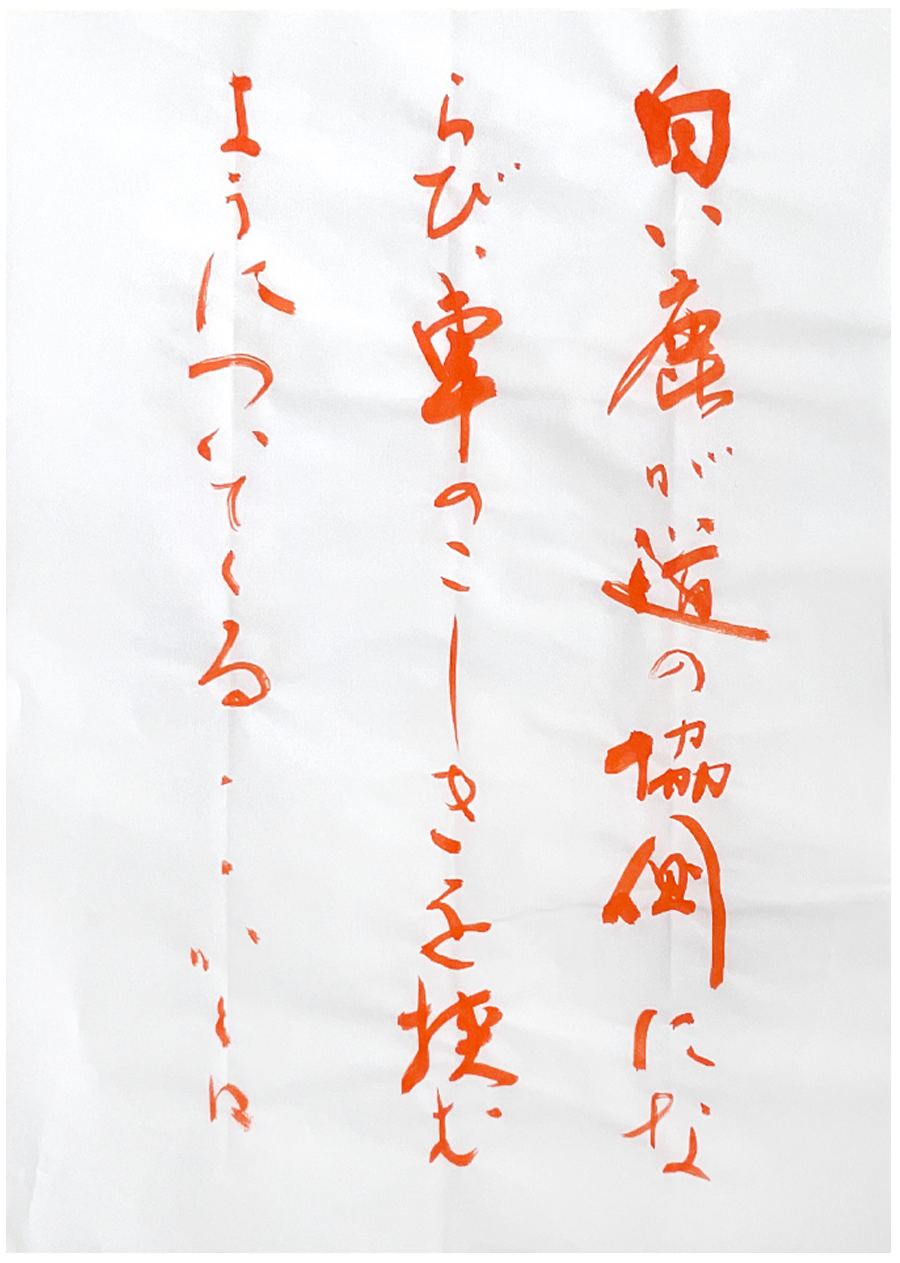 白い鹿が道の協側にな
らび、車のこしきを挟む
ようについてくる・・